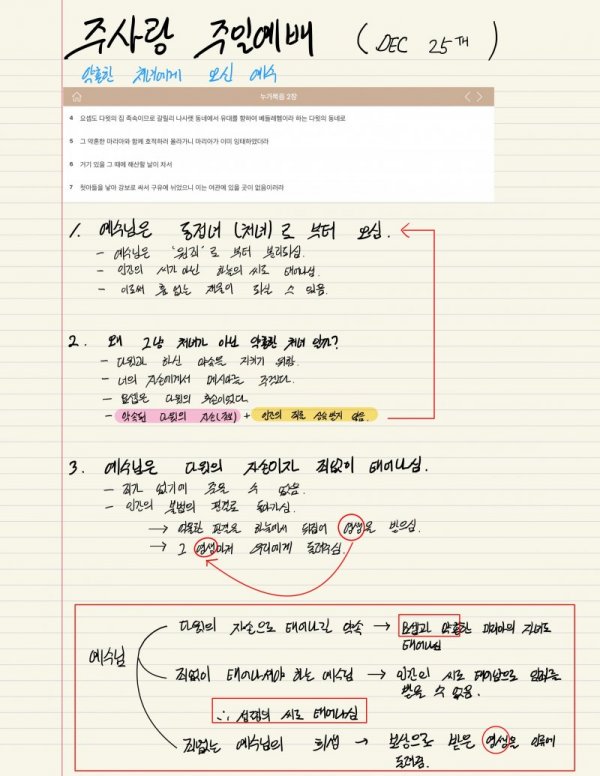 주사랑 주일예배 ( DEC 25th )
약혼한 처녀에게 오신 예수
누가복음 2장
4 요셉도 다윗의 집 족속이므로 갈릴리 나사렛 동네에서 유대를 향하여 베들레헴이라 하는 다윗의 동네로
5 그 약혼한 마리아와 함께 호적하러 올라가니 마리아가 이미 잉태하였더라
6 거기 있을 그 때에 해산할 날이 차서
7 첫아들을 낳아 강보로 싸서 구유에 뉘었으니 이는 여관에 있을 곳이 없음이러라
1. 예수님은 동정녀 (처녀)로 부터 오심.
- 예수님은 '원죄'로 부터 분리되심.
- 인간의 씨가 아닌 하늘의 씨로 태어나심.
- 이로써 흠 없는 제물이 되실 수 있음.
2. 왜 그냥 처녀가 아닌 약혼한 처녀 인가?
- 다윗과 하신 약속을 지키기 위함.
- 너의 자손에게서 메시아를 주겠다.
- 요셉은 다윗의 후손이었다.
- 약속된 다윗의 자손(족보) + 인간의 죄로 상속받지 않음.
3. 예수님은 다윗의 자손이자 죄없이 태어나심.
- 죄가 없기에 죽을 수 없음.
- 인간의 불법의 판결로 돌아가심.
→ 억울한 판결을 하늘에서 뒤집어 영생을 받으심.
→ 그 영생마저 우리에게 돌려주심.
예수님
다윗의 자손으로 태어나실 약속 → 요셉과 약혼한 마리아의 자녀로
태어나심
죄없이 태어나셔야 하는 예수님 → 인간의 씨로 태어남으로 원죄를
받을 수 없음.
∴ 성령의 씨로 태어나심
죄없는 예수님의 희생 → 보상으로 받은 영생을 인류에
돌려줌.